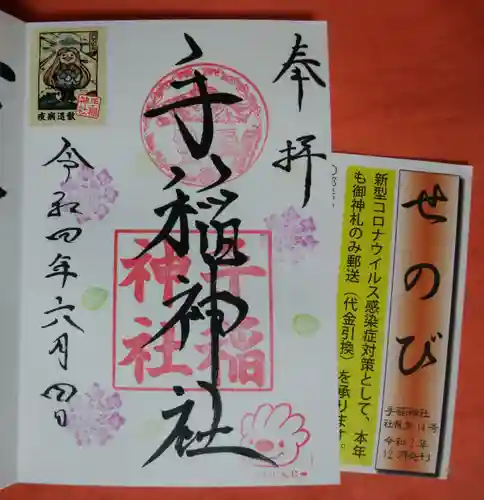 奉拝
手稲神社
手稲
神社
令和四年六月四日
疫病退散
手稲
神社
せのび
手稲神社
社報第14号
12月発刊
新型コロナウイルス感染症対策として、本年
も御神札のみ郵送（代金引換）を承ります。